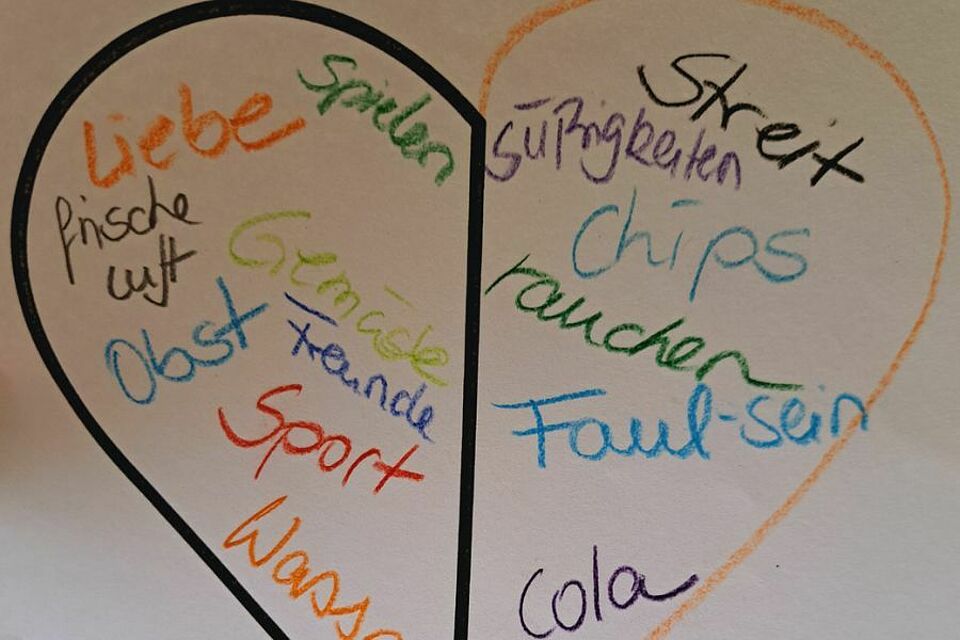 Spielen
Liebe
frische
Luft
Gemüse
Obst
Freunde
Sport
Wasse
Streit
Süßigkeiten
Chips
rauchen
Faul-sein
Cola